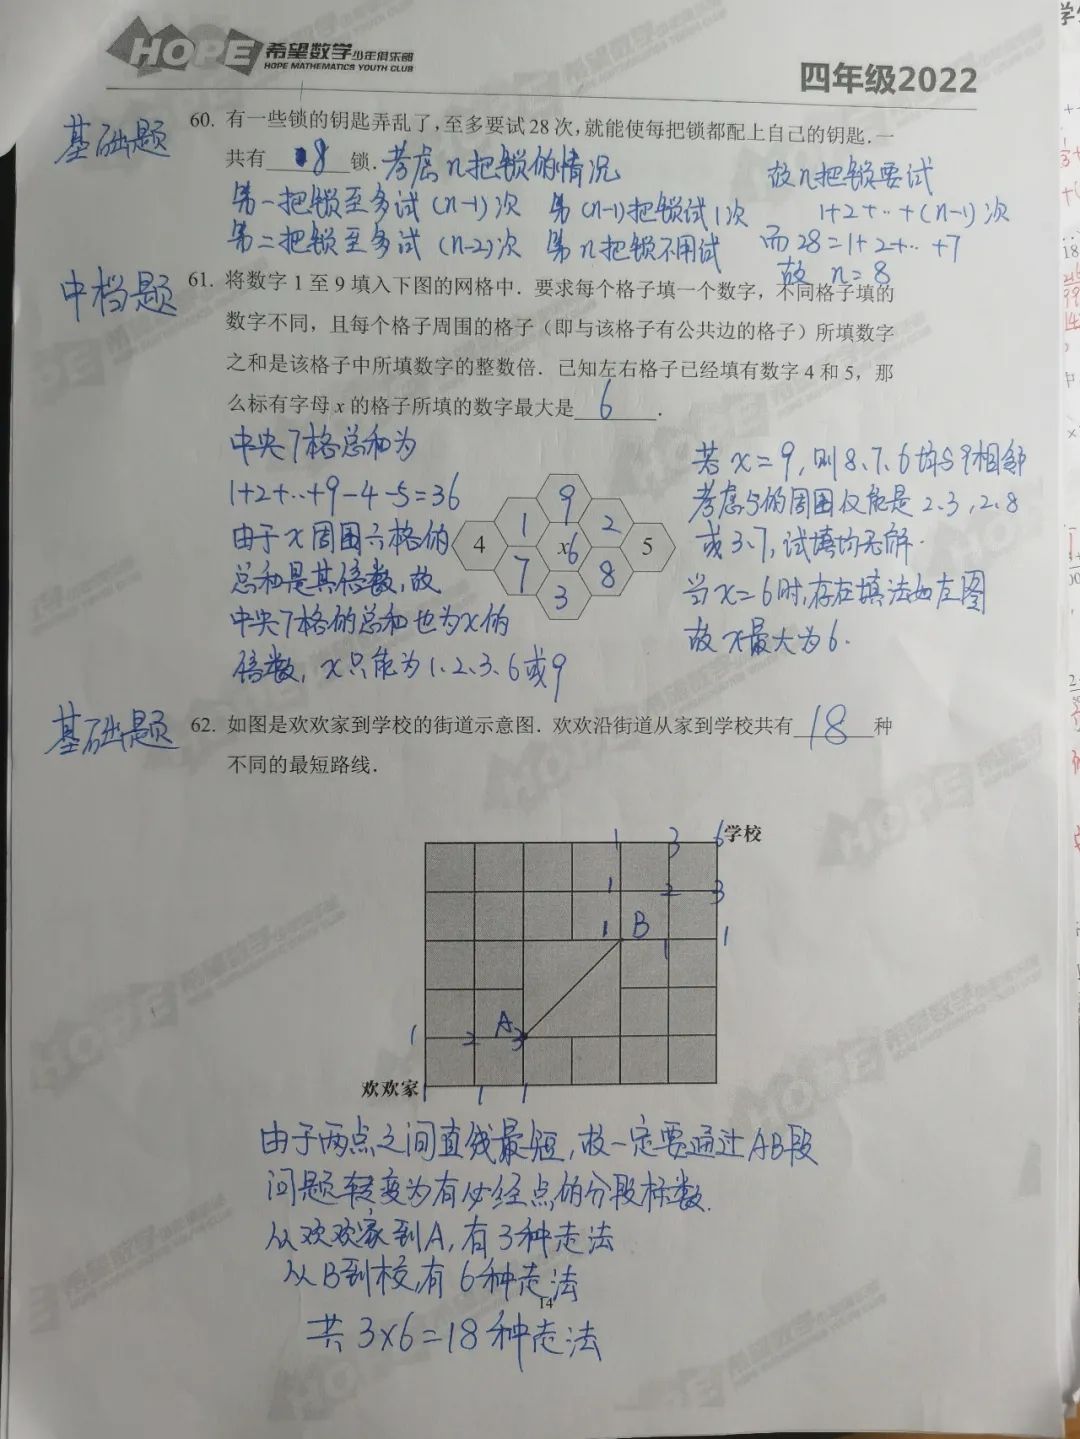 HOPE 希望数学少年俱乐部
HOPE MATHEMATICS YOUTH CLUB
四年级2022
基础题
60. 有一些锁的钥匙弄乱了,至多要试28次,就能使每把锁都配上自己的钥匙.一
共有 8 锁. 考虑n把锁的情况
故n把锁要试
第一把锁至多试(n-1)次 第(n-1)把锁试1次 1+2+…+(n-1)次
第二把锁至多试(n-2)次 第n把锁不用试 而28=1+2+…+7
故 n=8
中档题
61. 将数字1至9填入下图的网格中. 要求每个格子填一个数字, 不同格子填的
数字不同, 且每个格子周围的格子(即与该格子有公共边的格子)所填数字
之和是该格子中所填数字的整数倍. 已知左右格子已经填有数字4和5, 那
么标有字母x的格子所填的数字最大是 6 .
中央7格总和为
1+2+…+9-4-5=36
由于x周围六格的
总和是其倍数,故
中央7格的总和也为x的
倍数, x只能为1、2、3、6或9
9
1 2
4 x6 5
7 8
3
若x=9,则8、7、6均与9相邻
考虑5的周围仅能是2、3,2、8
或3、7,试填均无解.
当x=6时,存在填法如左图
故x最大为6.
基础题
62. 如图是欢欢家到学校的街道示意图. 欢欢沿街道从家到学校共有 18 种
不同的最短路线.
1 3 6 学校
1 2 3
1 B 1 1
1 2 A 3
欢欢家 1 1 1
由于两点之间直线最短,故一定要通过AB段
问题转变为有必经点的分段标数.
从欢欢家到A,有3种走法
从B到校,有6种走法
14
共3×6=18种走法